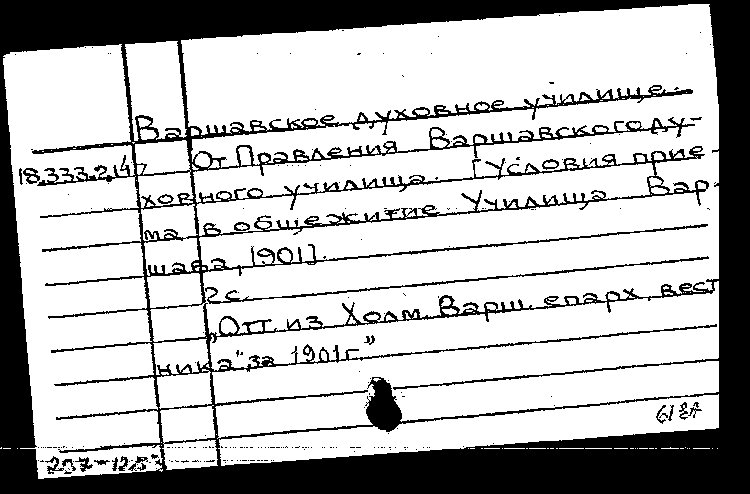 Варшавское духовное училище.
18.333.2.147 От Правления Варшавского ду-
ховного училища. [Условия прие-
ма в общежитие Училища Вар-
шава, 1901].
2 с.
„Отт. из Холм. Варш. епарх. вест
ника", за 1901 г."
237-1253